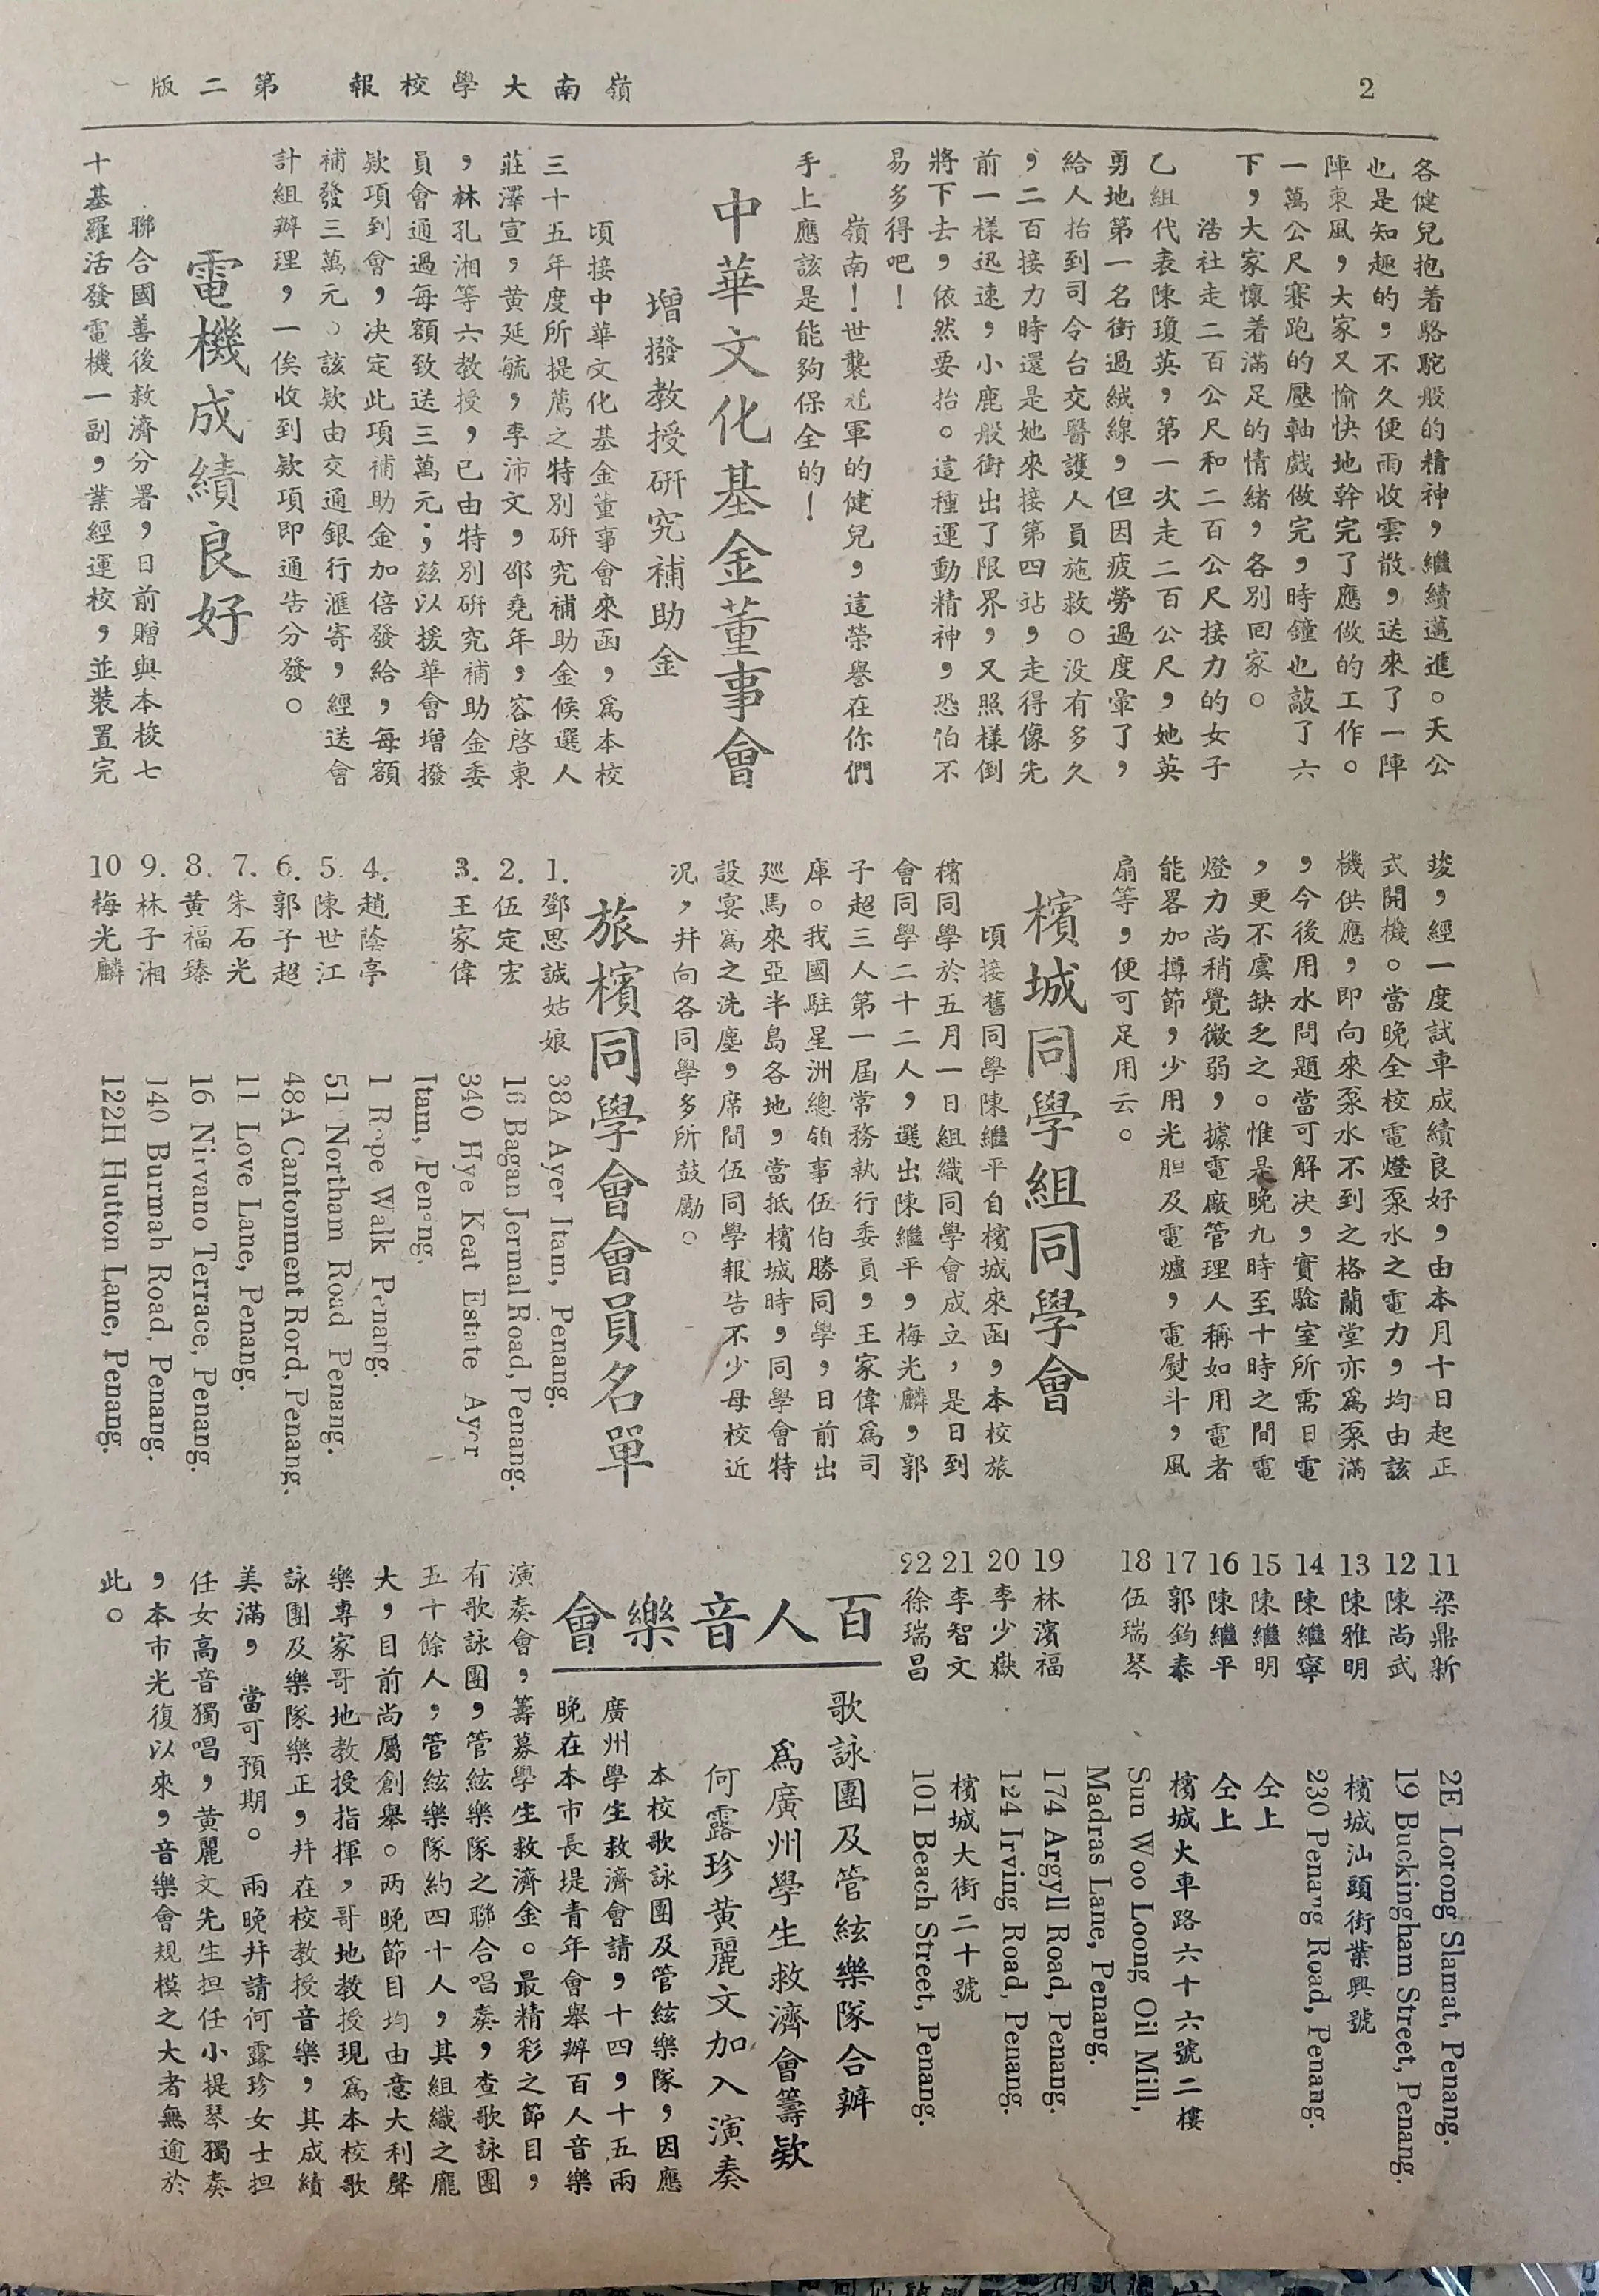 2
嶺南大學校報　第二版
各健兒抱着駱駝般的精神，繼續邁進。天公
也是知趣的，不久便雨收雲散，送來了一陣
陣東風，大家又愉快地幹完了應做的工作。
一萬公尺賽跑的壓軸戲做完，時鐘也敲了六
下，大家懷着滿足的情緒，各別回家。
浩社走二百公尺和二百公尺接力的女子
乙組代表陳瓊英，第一次走二百公尺，她英
勇地第一名衝過絨線，但因疲勞過度暈了，
給人抬到司令台交醫護人員施救。没有多久
，二百接力時還是她來接第四站，走得像先
前一樣迅速，小鹿般衝出了限界，又照樣倒
將下去，依然要抬。這種運動精神，恐伯不
易多得吧！
嶺南！世襲冠軍的健兒，這榮譽在你們
手上應該是能夠保全的！
中華文化基金董事會
增撥教授研究補助金
頃接中華文化基金董事會來函，爲本校
三十五年度所提薦之特別研究補助金候選人
莊澤宣，黃延毓，李沛文，邵堯年，容啓東
，林孔湘等六教授，已由特別研究補助金委
員會通過每額致送三萬元；茲以援華會增撥
欵項到會，决定此項補助金加倍發給，每額
補發三萬元。該欵由交通銀行滙寄，經送會
計組辦理，一俟收到欵項即通告分發。
電機成績良好
聯合國善後救濟分署，日前贈與本校七
十基羅活發電機一副，業經運校，並裝置完
竣，經一度試車成績良好，由本月十日起正
式開機。當晚全校電燈泵水之電力，均由該
機供應，即向來泵水不到之格蘭堂亦爲泵滿
，今後用水問題當可解决，實驗室所需日電
，更不虞缺乏之。惟是晚九時至十時之間電
燈力尚稍覺微弱，據電廠管理人稱如用電者
能畧加撙節，少用光胆及電爐，電熨斗，風
扇等，便可足用云。
檳城同學組同學會
頃接舊同學陳繼平自檳城來函，本校旅
檳同學於五月一日組織同學會成立，是日到
會同學二十二人，選出陳繼平，梅光麟，郭
子超三人第一屆常務執行委員，王家偉爲司
庫。我國駐星洲總領事伍伯勝同學，日前出
廵馬來亞半島各地，當抵檳城時，同學會特
設宴爲之洗塵，席間伍同學報告不少母校近
况，幷向各同學多所鼓勵。
旅檳同學會會員名單
1. 鄧思誠姑娘　38A Ayer Itam, Penang.
2. 伍定宏　16 Bagan Jermal Road, Penang.
3. 王家偉　340 Hye Keat Estate Ayer
Itam, Penang.
4. 趙蔭亭　1 Rope Walk Penang.
5. 陳世江　51 Northam Road Penang.
6. 郭子超　48A Cantonment Rord, Penang.
7. 朱石光　11 Love Lane, Penang.
8. 黃福臻　16 Nirvano Terrace, Penang.
9. 林子湘　140 Burmah Road, Penang.
10 梅光麟　122H Hutton Lane, Penang.
11 梁鼎新　2E Lorong Slamat, Penang.
12 陳尚武　19 Buckingham Street, Penang.
13 陳雅明　檳城汕頭街業興號
14 陳繼寧　230 Penang Road, Penang.
15 陳繼明　仝上
16 陳繼平　仝上
17 郭鈞泰　檳城火車路六十六號二樓
18 伍瑞琴　Sun Woo Loong Oil Mill,
Madras Lane, Penang.
19 林濱福　174 Argyll Road, Penang.
20 李少嶽　124 Irving Road, Penang.
21 李智文　檳城大街二十號
22 徐瑞昌　101 Beach Street, Penang.
百人音樂會
歌詠團及管絃樂隊合辦
爲廣州學生救濟會籌欵
何露珍黃麗文加入演奏
本校歌詠團及管絃樂隊，因應
廣州學生救濟會請，十四，十五兩
晚在本市長堤青年會舉辦百人音樂
演奏會，籌募學生救濟金。最精彩之節目，
有歌詠團，管絃樂隊之聯合唱奏，查歌詠團
五十餘人，管絃樂隊約四十人，其組織之龐
大，目前尚屬創舉。两晚節目均由意大利聲
樂專家哥地教授指揮，哥地教授現爲本校歌
詠團及樂隊樂正，幷在校教授音樂，其成績
美滿，當可預期。兩晚幷請何露珍女士担
任女高音獨唱，黃麗文先生担任小提琴獨奏
，本市光復以來，音樂會規模之大者無逾於
此。